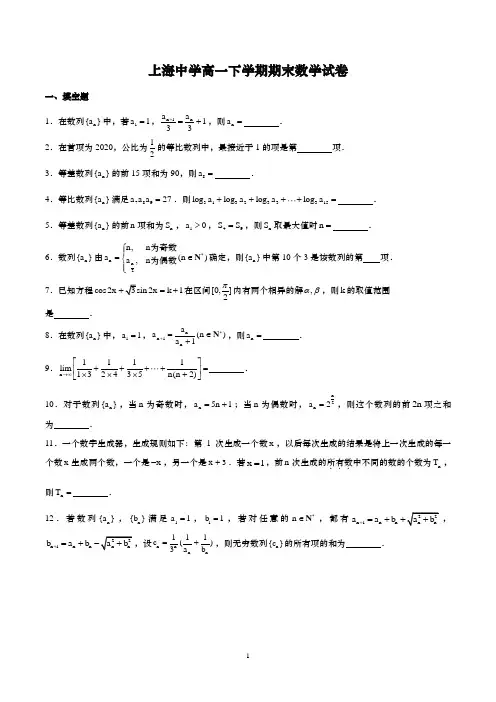 上海中学高一下学期期末数学试卷
一、填空题
1．在数列{aₙ}中，若a₁=1，aₙ₊₁/3=aₙ/3+1，则aₙ=____．
2．在首项为2020，公比为1/2的等比数列中，最接近于1的项是第____项．
3．等差数列{aₙ}的前15项和为90，则a₈=____．
4．等比数列{aₙ}满足a₇a₈a₉=27．则log₃a₁+log₃a₂+log₃a₃+⋯+log₃a₁₅=____．
5．等差数列{aₙ}的前n项和为Sₙ，a₁>0，S₄=S₉，则Sₙ取最大值时n=____．
6．数列{aₙ}由aₙ={n，n为奇数；a_{n/2}，n为偶数(n∈N*)确定，则{aₙ}中第10个3是该数列的第____项．
7．已知方程cos2x+√3sin2x=k+1在区间[0,π/2]内有两个相异的解α,β，则k的取值范围
是____．
8．在数列{aₙ}中，a₁=1，aₙ₊₁=aₙ/(aₙ+1)(n∈N*)，则aₙ=____．
9．lim_{n→∞}[1/(1×3)+1/(2×4)+1/(3×5)+⋯+1/(n(n+2))]=____．
10．对于数列{aₙ}，当n为奇数时，aₙ=5n+1；当n为偶数时，aₙ=2^{n/2}，则这个数列的前2n项之和
为____．
11．一个数字生成器，生成规则如下：第1次生成一个数x，以后每次生成的结果是将上一次生成的每一
个数x生成两个数，一个是-x，另一个是x+3．若x=1，前n次生成的所有数中不同的数的个数为Tₙ，
则Tₙ=____．
12．若数列{aₙ}，{bₙ}满足a₁=1，b₁=1，若对任意的n∈N*，都有aₙ₊₁=aₙ+bₙ+√(aₙ²+bₙ²)，
bₙ₊₁=aₙ+bₙ-√(aₙ²+bₙ²)，设cₙ=1/3ⁿ(1/aₙ+1/bₙ)，则无穷数列{cₙ}的所有项的和为____．
1